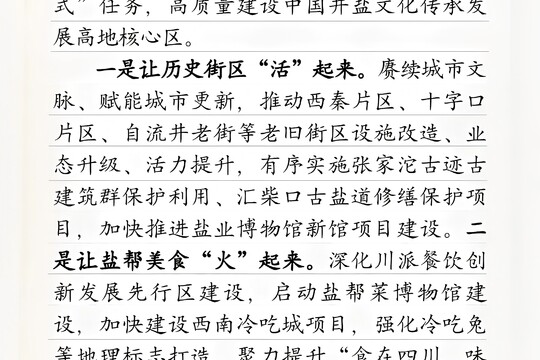 式”任务，高质量建设中国井盐文化传承发
展高地核心区。
一是让历史街区“活”起来。赓续城市文
脉、赋能城市更新，推动西秦片区、十字口
片区、自流井老街等老旧街区设施改造、业
态升级、活力提升，有序实施张家沱古迹古
建筑群保护利用、汇柴口古盐道修缮保护项
目，加快推进盐业博物馆新馆项目建设。二
是让盐帮美食“火”起来。深化川派餐饮创
新发展先行区建设，启动盐帮菜博物馆建
设，加快建设西南冷吃城项目，强化冷吃兔
等地理标志打造，聚力提升“食在四川、味